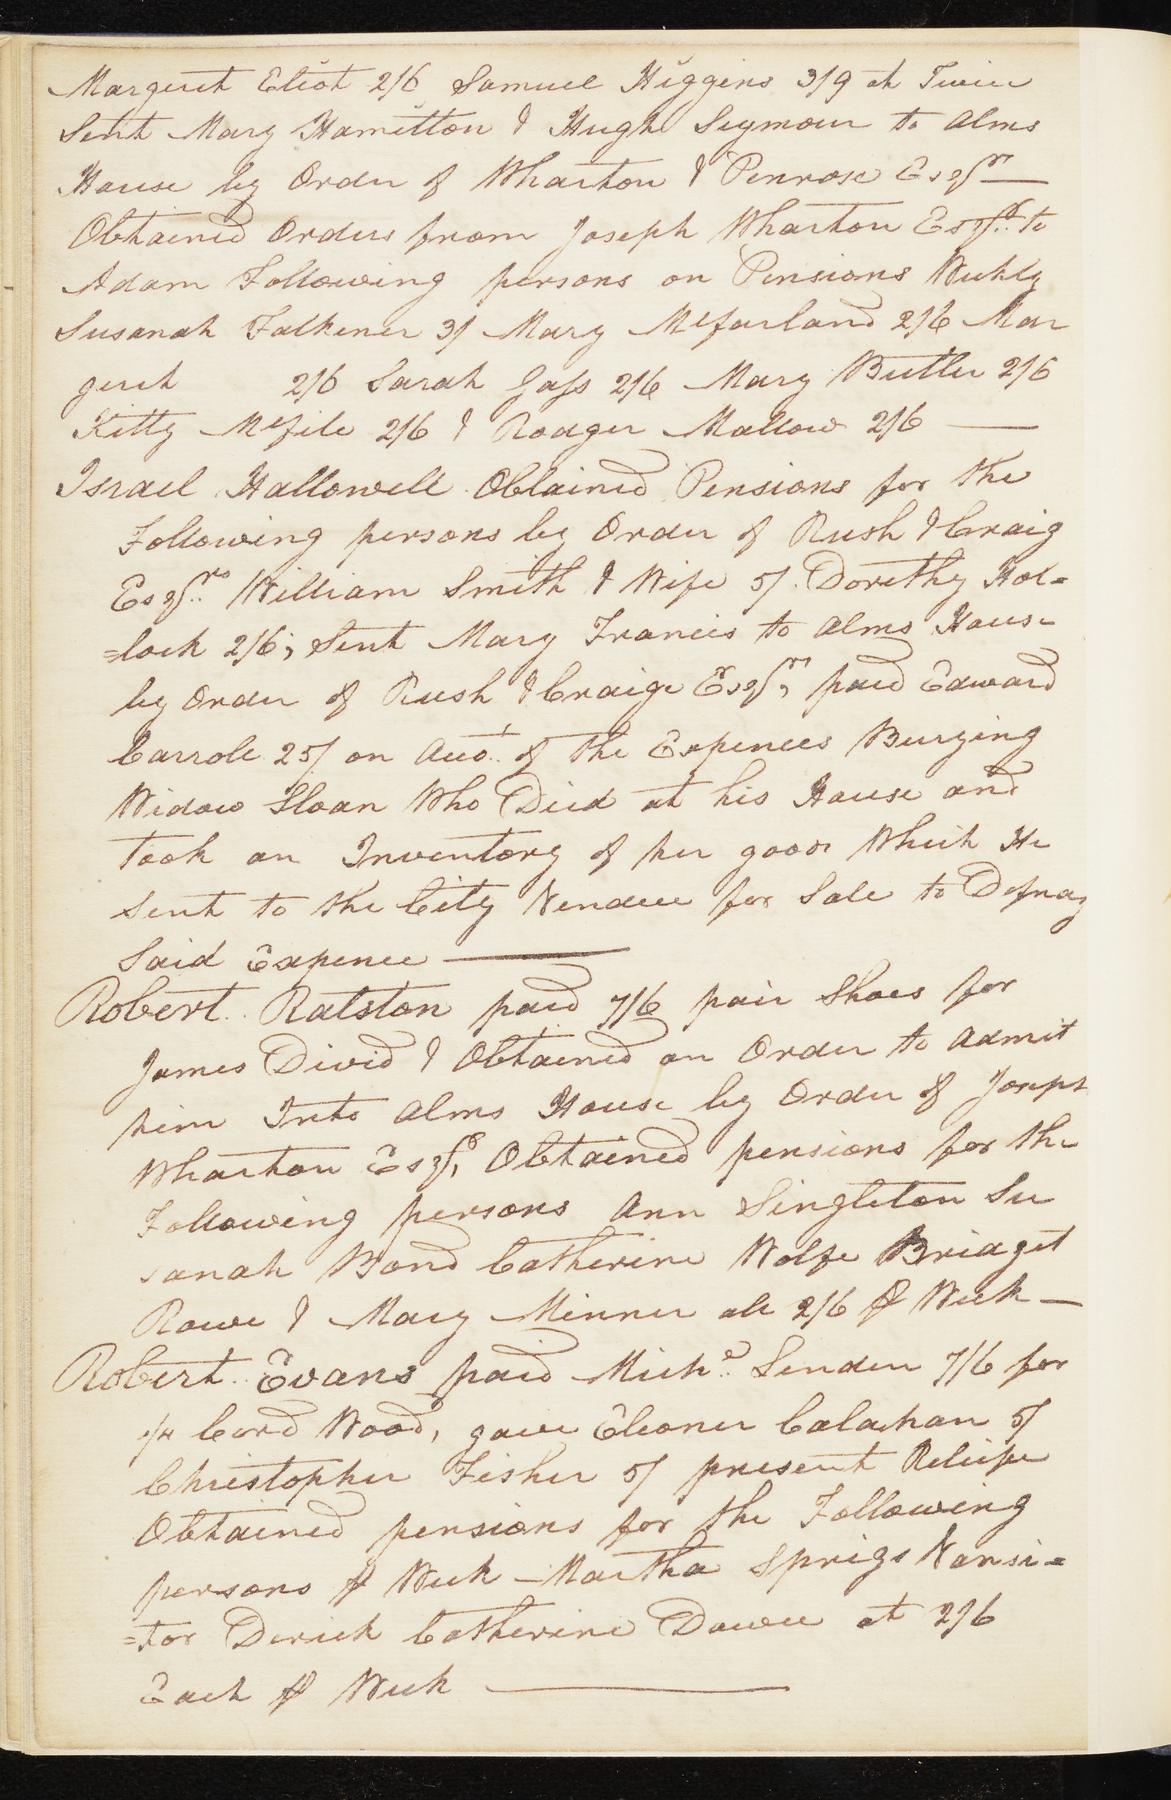 Margerit Eliot 2/6 Samuel Higgins 3/9 at Twice
Sent Mary Hamilton & Hugh Seymour to Alms
House by Order of Wharton & Penrose Esqrs
Obtained Orders from Joseph Wharton Esqr. to
Adam Following persons on Pensions Weekly
Susanah Falkener 3/ Mary Mcfarland 2/6 Mar
gerit 2/6 Sarah Gass 2/6 Mary Butler 2/6
Kitty Mcfile 2/6 & Rodger Mallow 2/6
Israel Hallowell Obtained Pensions for the
Following persons by Order of Rush & Craig
Esqrs. William Smith & Wife 5/. Dorethy Hol=
=lock 2/6; Sent Mary Francis to Alms House
by Order of Rush & Craige Esqrs, paid Edward
Carrole 25/ on Acct. of the Expences Burying
Widow Sloan Who Died at his House and
took an Inventory of her goods Which He
sent to the City Vendue for Sale to Defray
Said Expence
Robert Ralston paid 7/6 pair Shoes for
James Divid & Obtained an Order to Admit
him Into Alms House by Order of Joseph
Wharton Esqr, Obtained pensions for the
Following persons Ann Singleton Su
sanah Bond Catherine Wolfe Bridget
Rowe & Mary Minner at 2/6 ⅌ Week
Robert Evans paid Michl. Sender 7/6 for
1/4 Cord Wood, gave Eleoner Calachan 5/
Christopher Fisher 5/ present Reliefe
Obtained pensions for the Following
persons ⅌ Week Martha Sprigs Vansi=
=tor Derick Catherine Dawee at 2/6
Each ⅌ Week